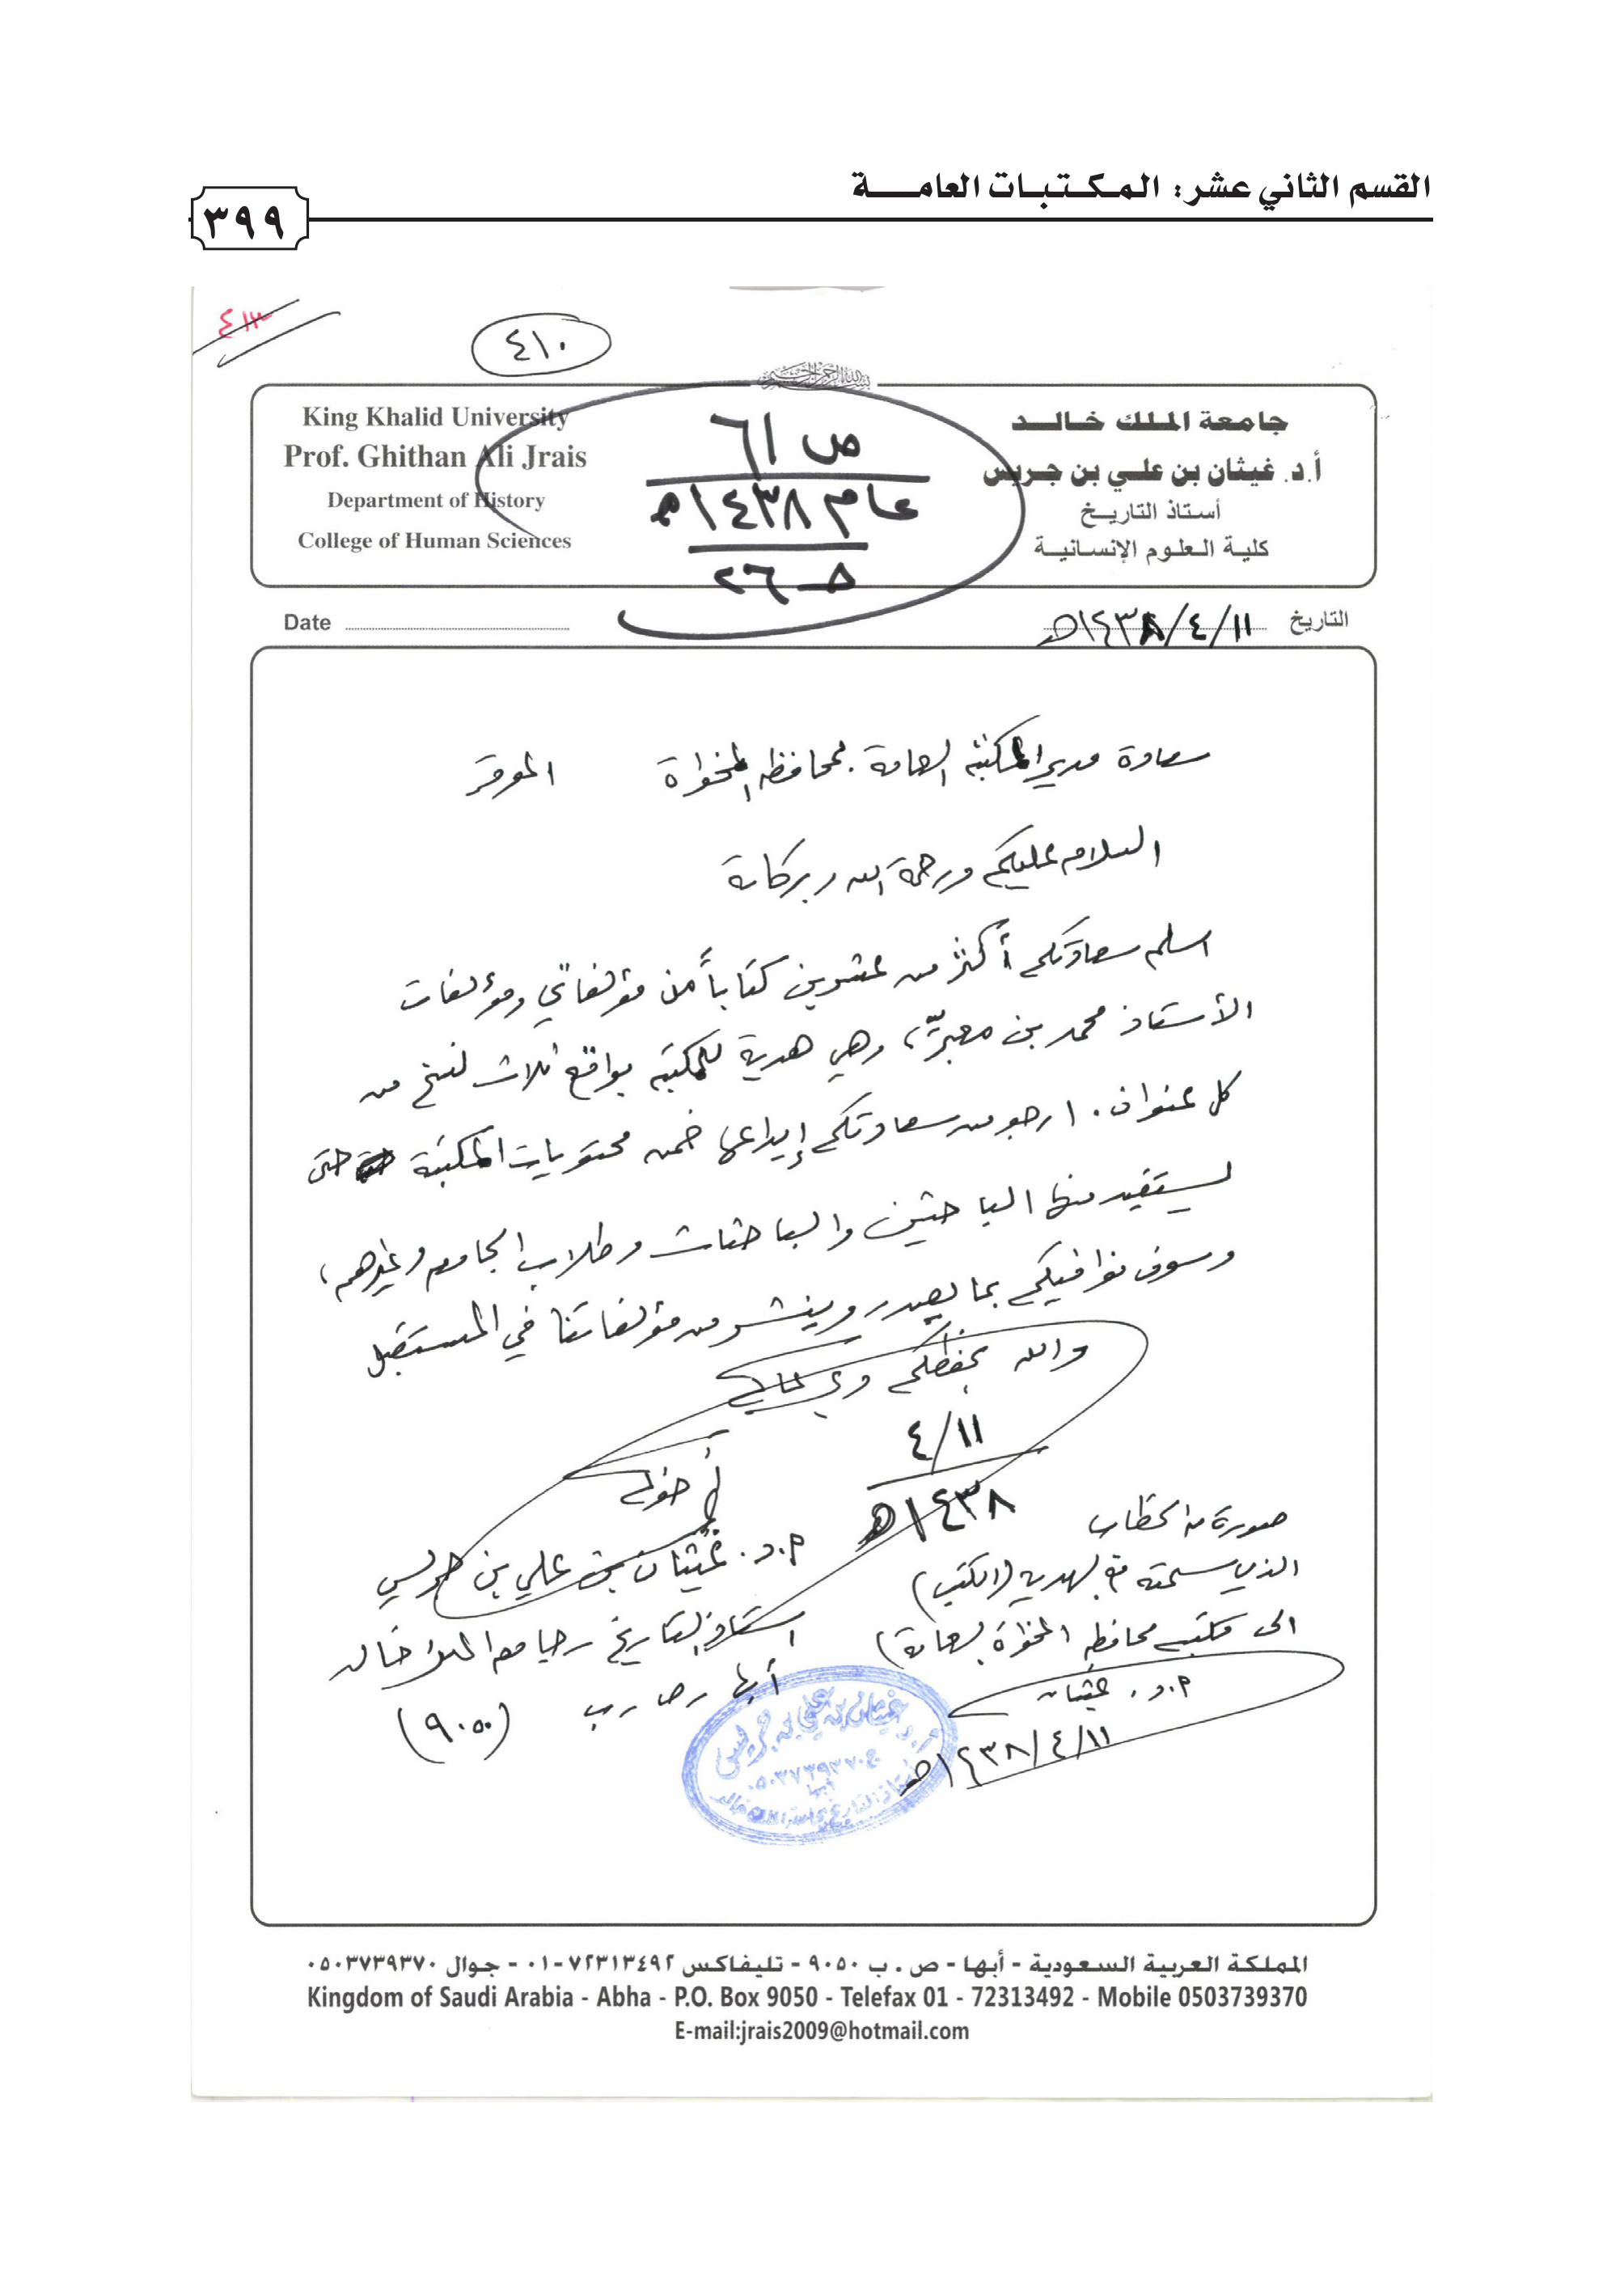 القسم الثاني عشر: المكتبات العامة
٣٩٩
٤١٠
بسم الله الرحمن الرحيم
جامعة الملك خالد
أ.د. غيثان بن علي بن جريس
أستاذ التاريخ
كلية العلوم الإنسانية
King Khalid University
Prof. Ghithan Ali Jrais
Department of History
College of Human Sciences
ص ٦١
عام ١٤٣٨هـ
حـ ٢٦
التاريخ ١١/٤/١٤٣٨هـ
Date
سعادة مدير المكتبة العامة بمحافظة المخواة الموقر
السلام عليكم ورحمة الله وبركاته
اسلم سعادتكم أكثر من عشرين كتاباً من مؤلفاتي ومؤلفات
الأستاذ محمد بن معبر، وهي هدية للمكتبة بواقع ثلاث نسخ من
كل عنوان. ارجو من سعادتكم إيداعها ضمن محتويات المكتبة حتى
يستفيد منها الباحثين والباحثات وطلاب الجامعه وغيرهم،
وسوف نوافيكم بما يصدر وينشر من مؤلفاتنا في المستقبل
والله يحفظكم ويرعاكم
١١/٤
١٤٣٨هـ
أخوكم
أ.د. غيثان بن علي بن جريس
استاذ التاريخ بجامعة الملك خالد
أبها ص. ب (٩٠٥٠)
صورة من الخطاب
الذي سلمته مع الهدية (الكتب)
الى مكتبة محافظة المخواة العامة)
أ.د. غيثان
١١/٤/١٤٣٨هـ
أ.د. غيثان بن علي بن جريس
٠٥٠٣٧٣٩٣٧٠
أبها
أستاذ التاريخ بجامعة الملك خالد
المملكة العربية السعودية - أبها - ص . ب ٩٠٥٠ - تليفاكس ٧٢٣١٣٤٩٢-٠١ - جوال ٠٥٠٣٧٣٩٣٧٠
Kingdom of Saudi Arabia - Abha - P.O. Box 9050 - Telefax 01 - 72313492 - Mobile 0503739370
E-mail:jrais2009@hotmail.com